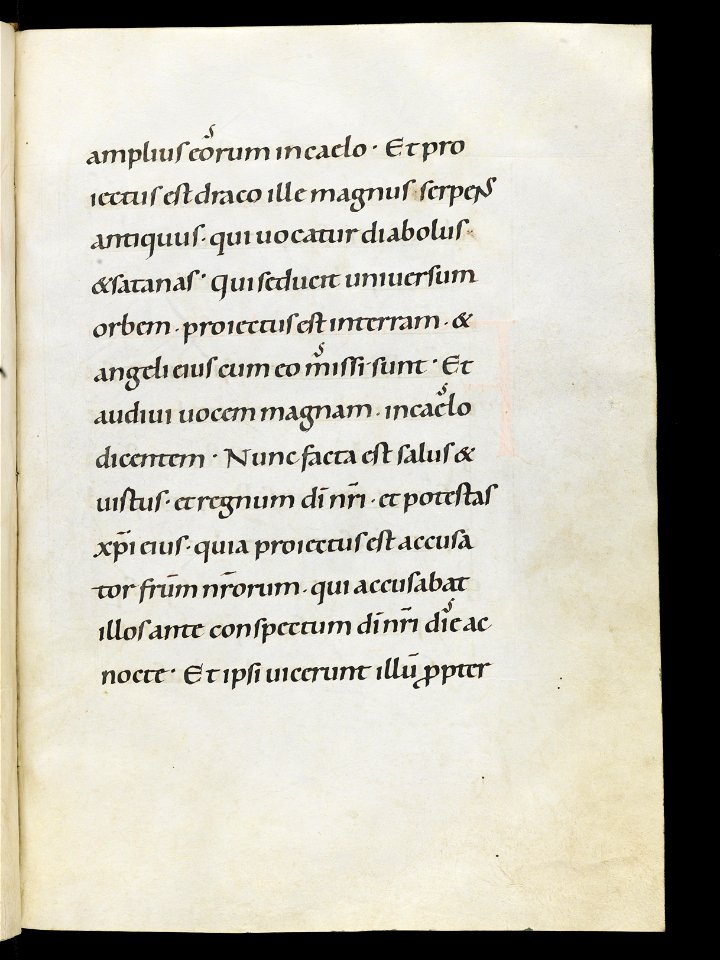 amplius eorum in caelo · Et pro
iectus est draco ille magnus serpens
antiquus · qui uocatur diabolus ·
& satanas · Qui seducit uniuersum
orbem · proiectus est in terram · &
angeli eius cum eo missi sunt · Et
audiui uocem magnam · in caelo
dicentem · Nunc facta est salus &
uistus · et regnum dī nr̄i · et potestas
xp̄i eius · quia proiectus est accusa
tor frūm nr̄orum · qui accusabat
illos ante conspectum dī nr̄i die ac
nocte · Et ipsi uicerunt illū ꝓpter